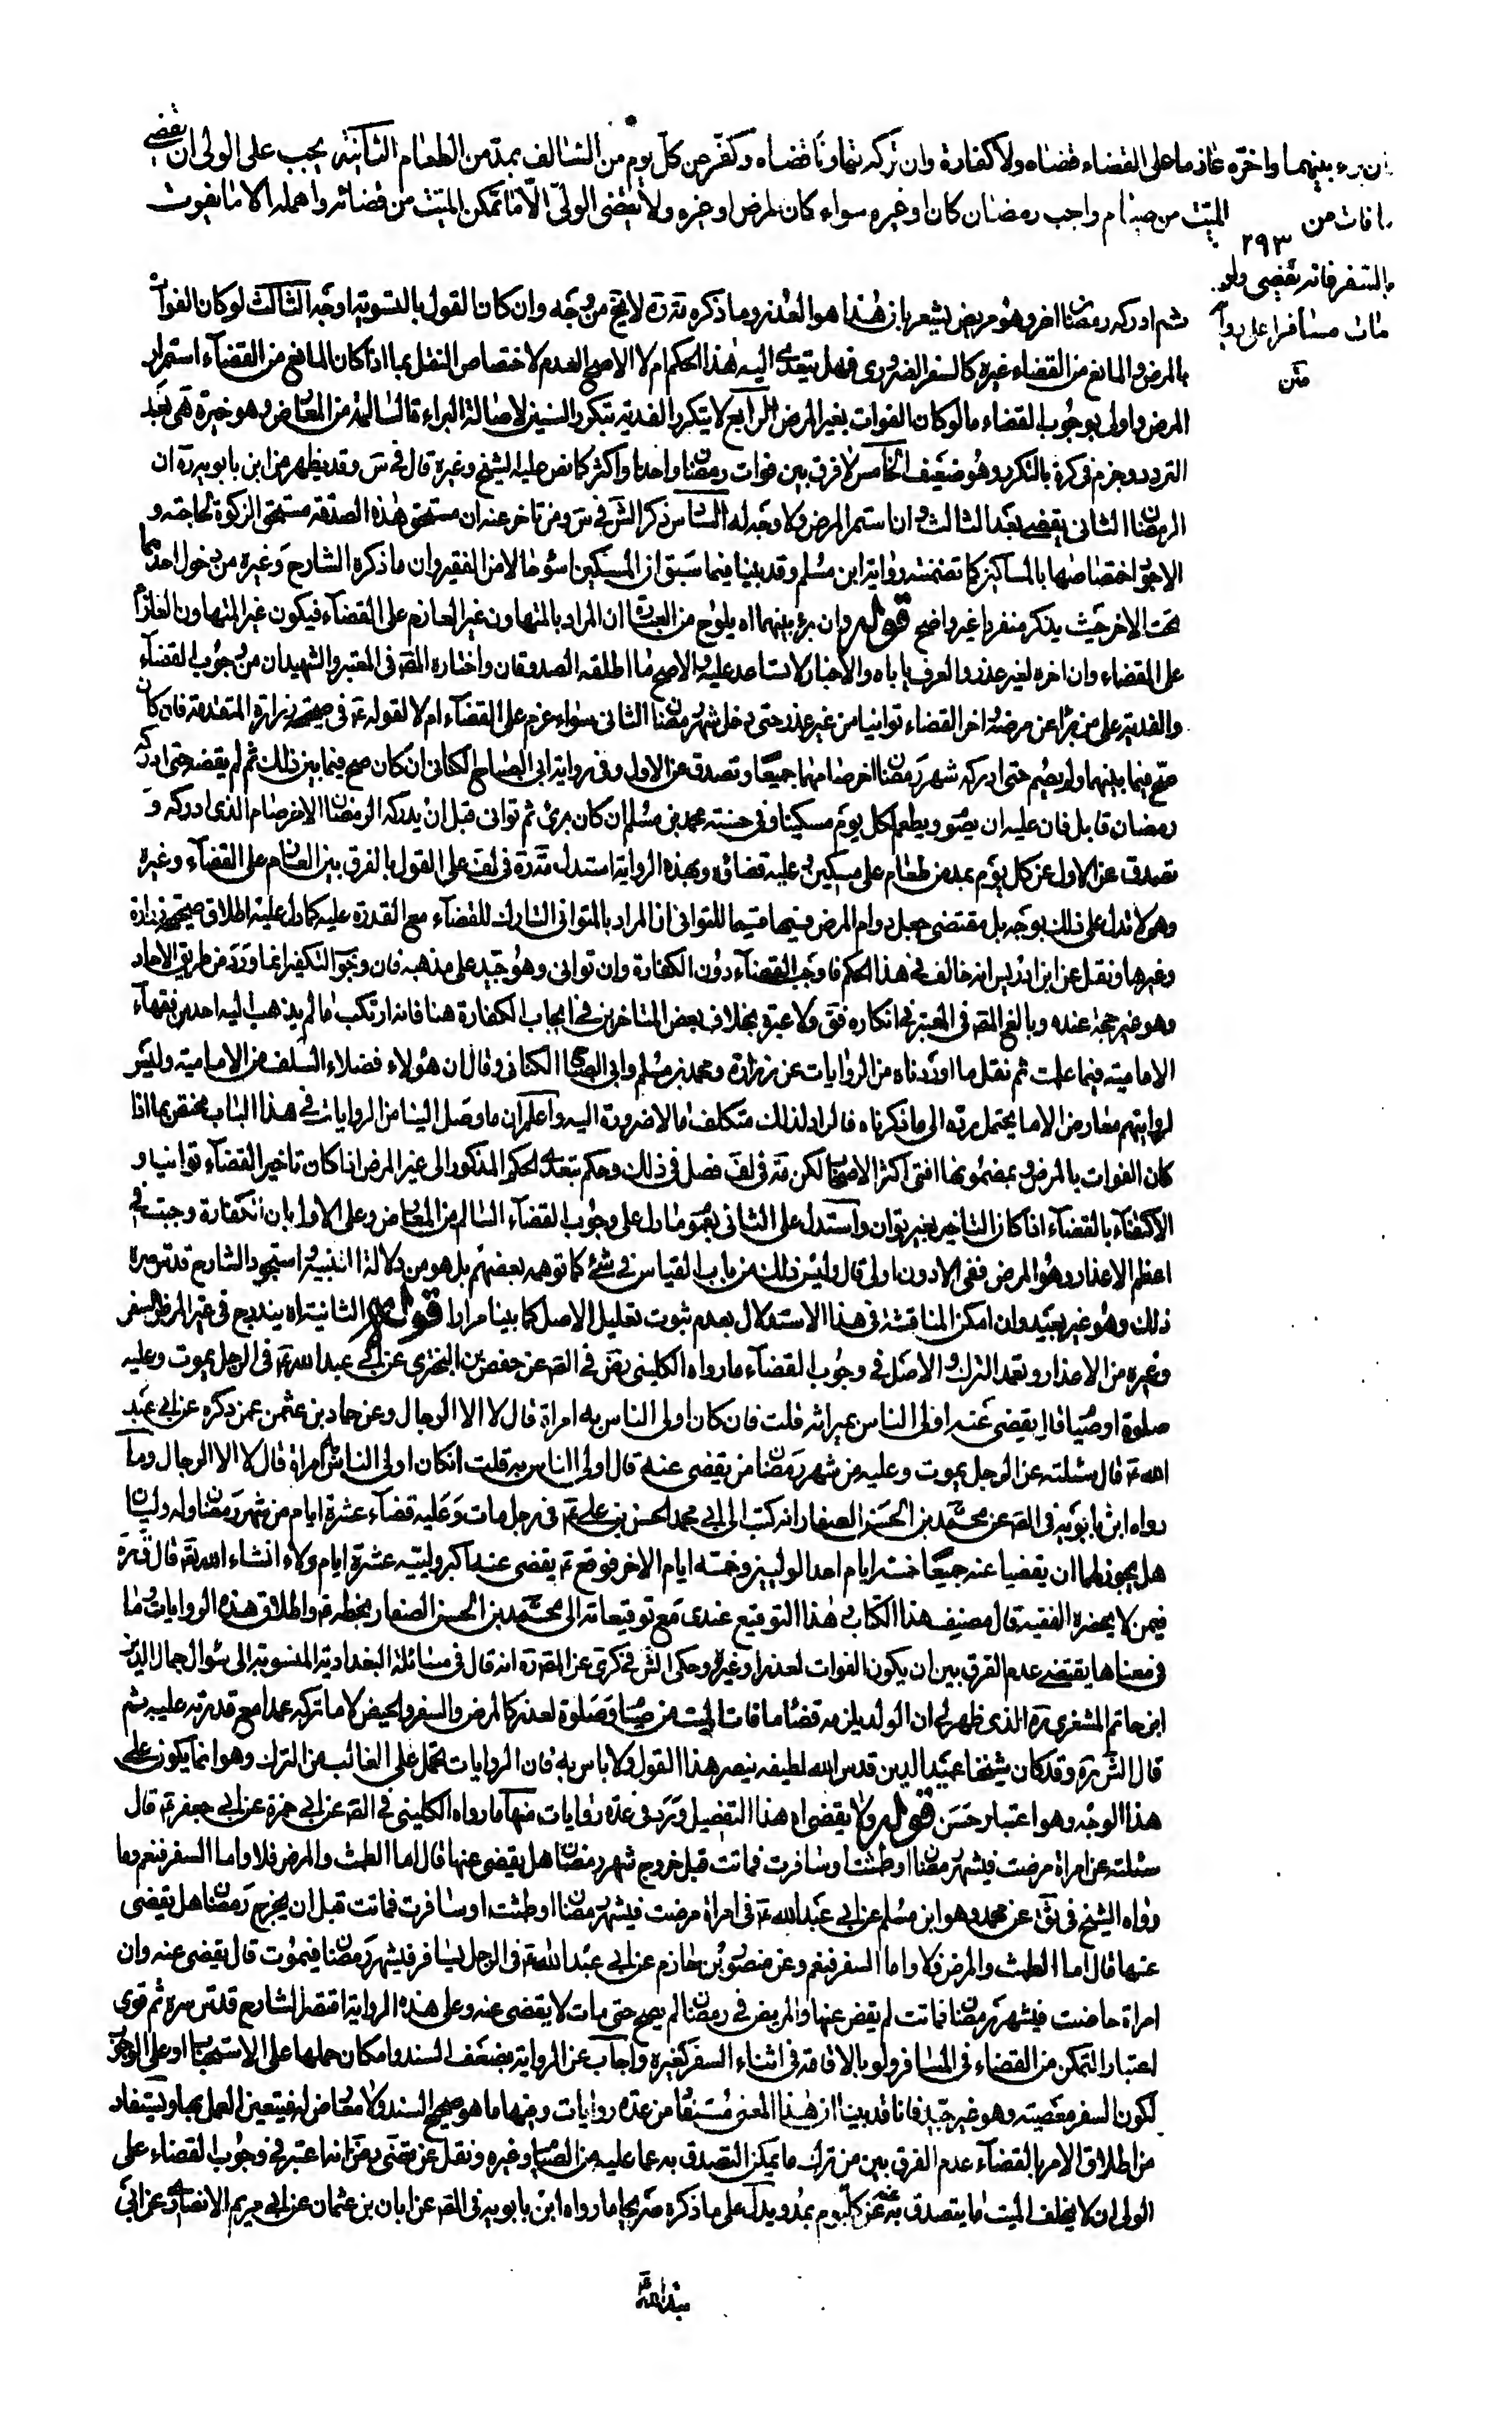 ان برء بينهما واخره عازما على القضاء قضاه ولا كفارة وان تركه تهاونا قضاه وكفر عن كل يوم من السالف بمد من الطعام الثانية يجب على الولى ان يقضى
ما فات من الميت من صيام واجب رمضان كان او غيره سواء كان لمرض او غيره ولا يقضى الولى الا ما تمكن الميت من قضائه واهمله الا ما يفوت
٢٩٣
بالسفر فانه يقضى ولو
مات مسافرا على رواية
متن
ثم ادركه رمضان اخر وهو مريض يشعر بان هذا هو العذر وما ذكره ره لا يخ من وجه وان كان القول بالتسوية اوجه الثالث لو كان الفوات
بالمرض والمانع من القضاء غيره كالسفر الضرورى فهل يتعدى اليه هذا الحكم ام لا الاصح العدم لاختصاص النقل بما اذا كان المانع من القضاء استمرار
المرض واولى بوجوب القضاء ما لو كان الفوات بغير المرض الرابع لا يتكرر الفدية بتكرر السنين لاصالة البراءة السالمة من المعارض وهو خيرة هى بعد
التردد وجزم فى كرة بالتكرر وهو ضعيف الخامس لا فرق بين فوات رمضان واحد او اكثر كما نص عليه الشيخ وغيره قال فى س وقد يظهر من ابن بابويه ره ان
الرمضان الثانى يقضى بعد الثالث وان استمر المرض ولا وجه له السادس ذكر الش فى س ومن تاخر عنه ان مستحق هذه الصدقة مستحق الزكوة لحاجته و
الاجود اختصاصها بالمساكين كما تضمنته رواية ابن مسلم وقد بينا فيما سبق ان المسكين اسوء حالا من الفقير وان ما ذكره الشارح وغيره من دخول احدهما
تحت الاخر حيث يذكر منفردا غير واضح قوله وان برئ بينهما اه يلوح من العبارة ان المراد بالمتهاون غير العازم على القضاء فيكون غير المتهاون العازم
على القضاء وان اخره لغير عذر والعرف ياباه والاخبار لا تساعد عليه والاصح ما اطلقه الصدوقان واختاره المص فى المعتبر والشهيدان من وجوب القضاء
والفدية على من برا عن مرضه اخر القضاء توانيا من غير عذر حتى دخل شهر رمضان الثانى سواء عزم على القضاء ام لا لقوله ع فى صحيحة زرارة المتقدمة فان كان
صح فيما بينهما ولم يصم حتى ادركه شهر رمضان اخر صامهما جميعا وتصدق عن الاول وفى رواية ابى الصباح الكنانى ان كان صح فيما بين ذلك ثم لم يقضه حتى ادركه
رمضان قابل فان عليه ان يصوم ويطعم كل يوم مسكينا وفى حسنة محمد بن مسلم ان كان برئ ثم توانى قبل ان يدركه الرمضان الاخر صام الذى ادركه و
تصدق عن الاول عن كل يوم بمد من طعام على مسكين وعليه قضاؤه وبهذه الرواية استدل ره فى لف على القول بالفرق بين العازم على القضاء وغيره
وهى لا تدل على ذلك بوجه بل مقتضى جعل دوام المرض فيها قسيما للتوانى ان المراد بالمتوانى التارك للقضاء مع القدرة عليه كما دل عليه اطلاق صحيحة زرارة
وغيرها ونقل عن ابن ادريس انه خالف فى هذا الحكم فاوجب القضاء دون الكفارة وان توانى وهو جيد على مذهبه فان وجوب التكفير انما ورد من طريق الاحاد
وهو غير حجة عنده وبالغ المص فى المعتبر فى انكاره فق ولا عبرة بخلاف بعض المتاخرين فى ايجاب الكفارة هنا فانه ارتكب ما لم يذهب اليه احد من فقهاء
الامامية فيما علمت ثم نقل ما اوردناه من الروايات عن زرارة ومحمد بن مسلم وابى الصباح الكنانى وقال ان هؤلاء فضلاء السلف من الامامية وليس
لروايتهم معارض الا ما يحتمل رده الى ما ذكرناه فالراد لذلك متكلف ما لا ضرورة اليه واعلم ان ما وصل الينا من الروايات فى هذا الباب مختص بما اذا
كان الفوات بالمرض وبمضمونها افتى اكثر الاصحاب لكن ره فى لف فصل فى ذلك وحكم بتعدى الحكم المذكور الى غير المرض اذا كان تاخير القضاء توانيا و
الاكتفاء بالقضاء اذا كان التاخير بغير توان واستدل على الثانى بعموم ما دل على وجوب القضاء السالم من المعارض وعلى الاول بان الكفارة وجبت فى
اعظم الاعذار وهو المرض ففى الادون اولى قال وليس ذلك من باب القياس فى شئ كما توهمه بعضهم بل هو من دلالة التنبيه واستجود الشارح قدس سره
ذلك وهو غير بعيد وان امكن المناقشة فى هذا الاستدلال بعدم ثبوت تعليل الاصل كما بينا مرارا قوله الثانية اه يندرج فى غير المرض السفر
وغيره من الاعذار وتعمد الترك والاصل فى وجوب القضاء ما رواه الكلينى رض فى الص عن حفص بن البخترى عن ابى عبد الله ع فى الرجل يموت وعليه
صلوة او صيام قال يقضى عنه اولى الناس بميراثه قلت فان كان اولى الناس به امراة قال لا الا الرجال وعن حماد بن عثمن عمن ذكره عن ابى عبد
الله ع قال سئلته عن الرجل يموت وعليه من شهر رمضان من يقضى عنه قال اولى الناس به قلت ان كان اولى الناس به امراة قال لا الا الرجال وما
رواه ابن بابويه فى الص عن محمد بن الحسن الصفار انه كتب الى ابى محمد الحسن بن على ع فى رجل مات وعليه قضاء عشرة ايام من شهر رمضان وله وليان
هل يجوز لهما ان يقضيا عنه جميعا خمسة ايام احد الوليين وخمسة ايام الاخر فوقع ع يقضى عنه اكبر ولييه عشرة ايام ولاء انشاء الله تع قال ره
فيمن لا يحضره الفقيه قال مصنف هذا الكتاب هذا التوقيع عندى مع توقيعاته الى محمد بن الحسن الصفار بخطه ع واطلاق هذه الروايات وما
فى معناها يقتضى عدم الفرق بين ان يكون الفوات لعذر او غيره وحكى الش فى كرى عن المص ره انه قال فى مسائله البغدادية المنسوبة الى سؤال جمال الدين
ابن حاتم المشغرى ره الذى ظهر لى ان الولد يلزمه قضاء ما فات الميت من صيام وصلوة لعذر كالمرض والسفر والحيض لا ما تركه عمدا مع قدرته عليه ثم
قال الش ره وقد كان شيخنا عميد الدين قدس الله لطيفه ينصر هذا القول ولا باس به فان الروايات تحمل على الغالب من الترك وهو انما يكون على
هذا الوجه وهو اعتبار حسن قوله ولا يقضى اه هذا التفصيل ورد فى عدة روايات منها ما رواه الكلينى فى الص عن ابى حمزة عن ابى جعفر ع قال
سئلته عن امراة مرضت فى شهر رمضان او طمثت او سافرت فماتت قبل خروج شهر رمضان هل يقضى عنها قال اما الطمث والمرض فلا واما السفر فنعم وما
رواه الشيخ فى ثق عن محمد وهو ابن مسلم عن ابى عبد الله ع فى امراة مرضت فى شهر رمضان او طمثت او سافرت فماتت قبل ان يخرج رمضان هل يقضى
عنها قال اما الطمث والمرض فلا واما السفر فنعم وعن منصور بن حازم عن ابى عبد الله ع فى الرجل يسافر فى شهر رمضان فيموت قال يقضى عنه وان
امراة حاضت فى شهر رمضان فماتت لم يقض عنها والمريض فى رمضان لم يصح حتى مات لا يقضى عنه وعلى هذه الرواية اقتصر الشارح قدس سره ثم قوى
اعتبار التمكن من القضاء فى المسافر ولو بالاقامة فى اثناء السفر كغيره واجاب عن الرواية بضعف السند وامكان حملها على الاستحباب او على الوجوب
لكون السفر معصية وهو غير جيد فانا قد بينا ان هذا المعنى مستفاد من عدة روايات ومنها ما هو صحيح السند ولا معارض له فيتعين العمل بها ويستفاد
من اطلاق الامر بالقضاء عدم الفرق بين من ترك ما يمكن التصدق به عما عليه من الصيام وغيره ونقل عن مرتضى رض انه اعتبر فى وجوب القضاء على
الولى ان لا يخلف الميت ما يتصدق به عنه عن كل يوم بمد ويدل على ما ذكره صريحا ما رواه ابن بابويه فى الص عن ابان بن عثمان عن ابى مريم الانصارى عن ابى
عبد الله ع